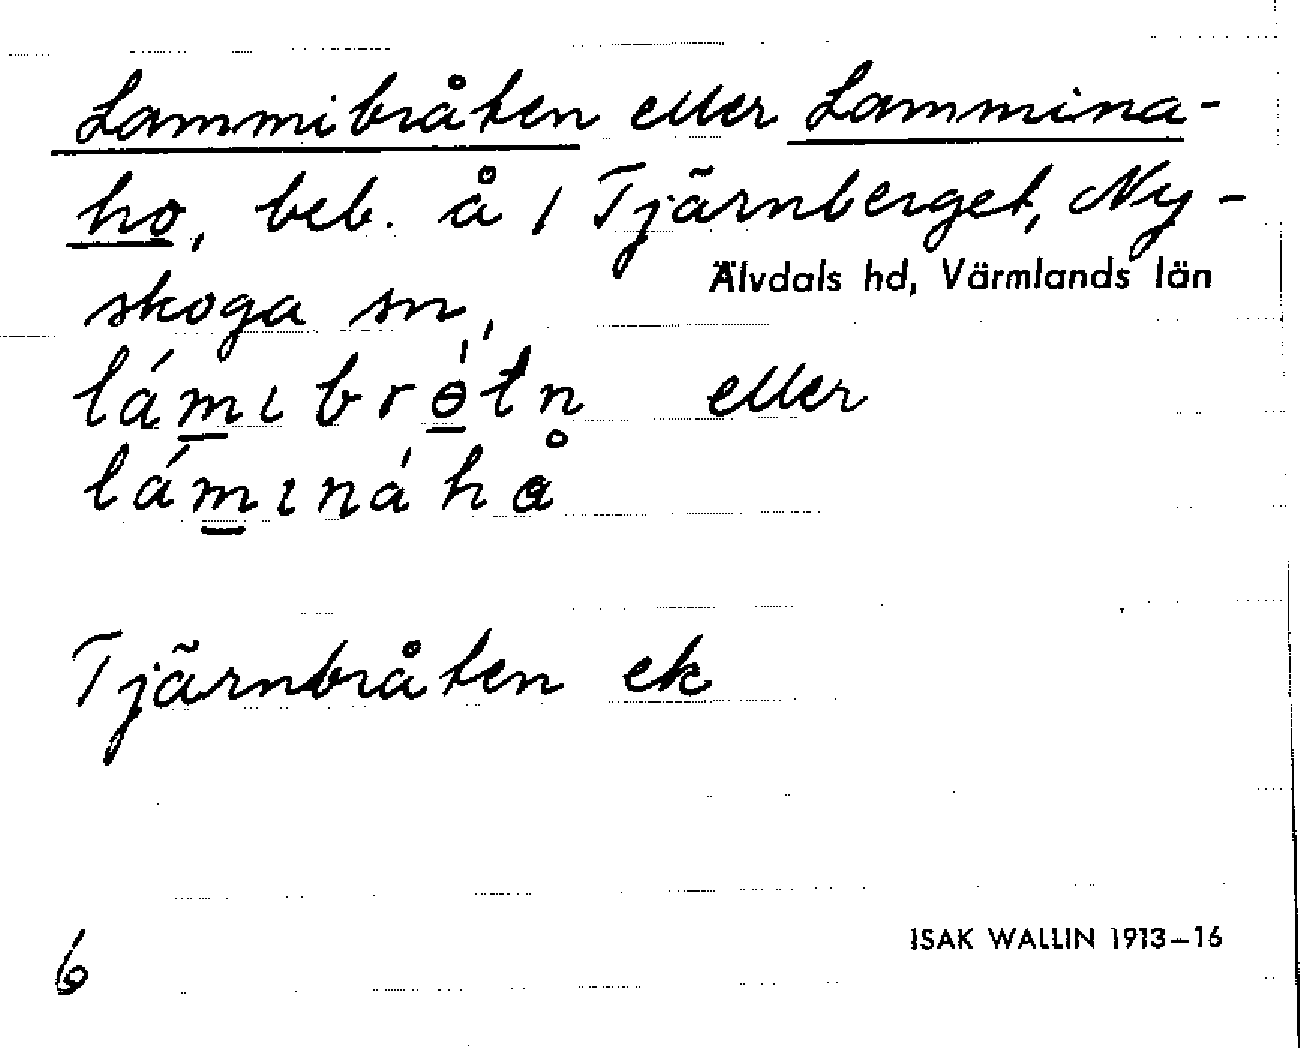 Lammibråten eller Lammina-
ho, beb. å 1 Tjärnberget, Ny-
Älvdals hd, Värmlands län
skoga sn,
lámıbrètn eller
lámınàhå
Tjärnbråten ek
ISAK WALLIN 1913–16
6